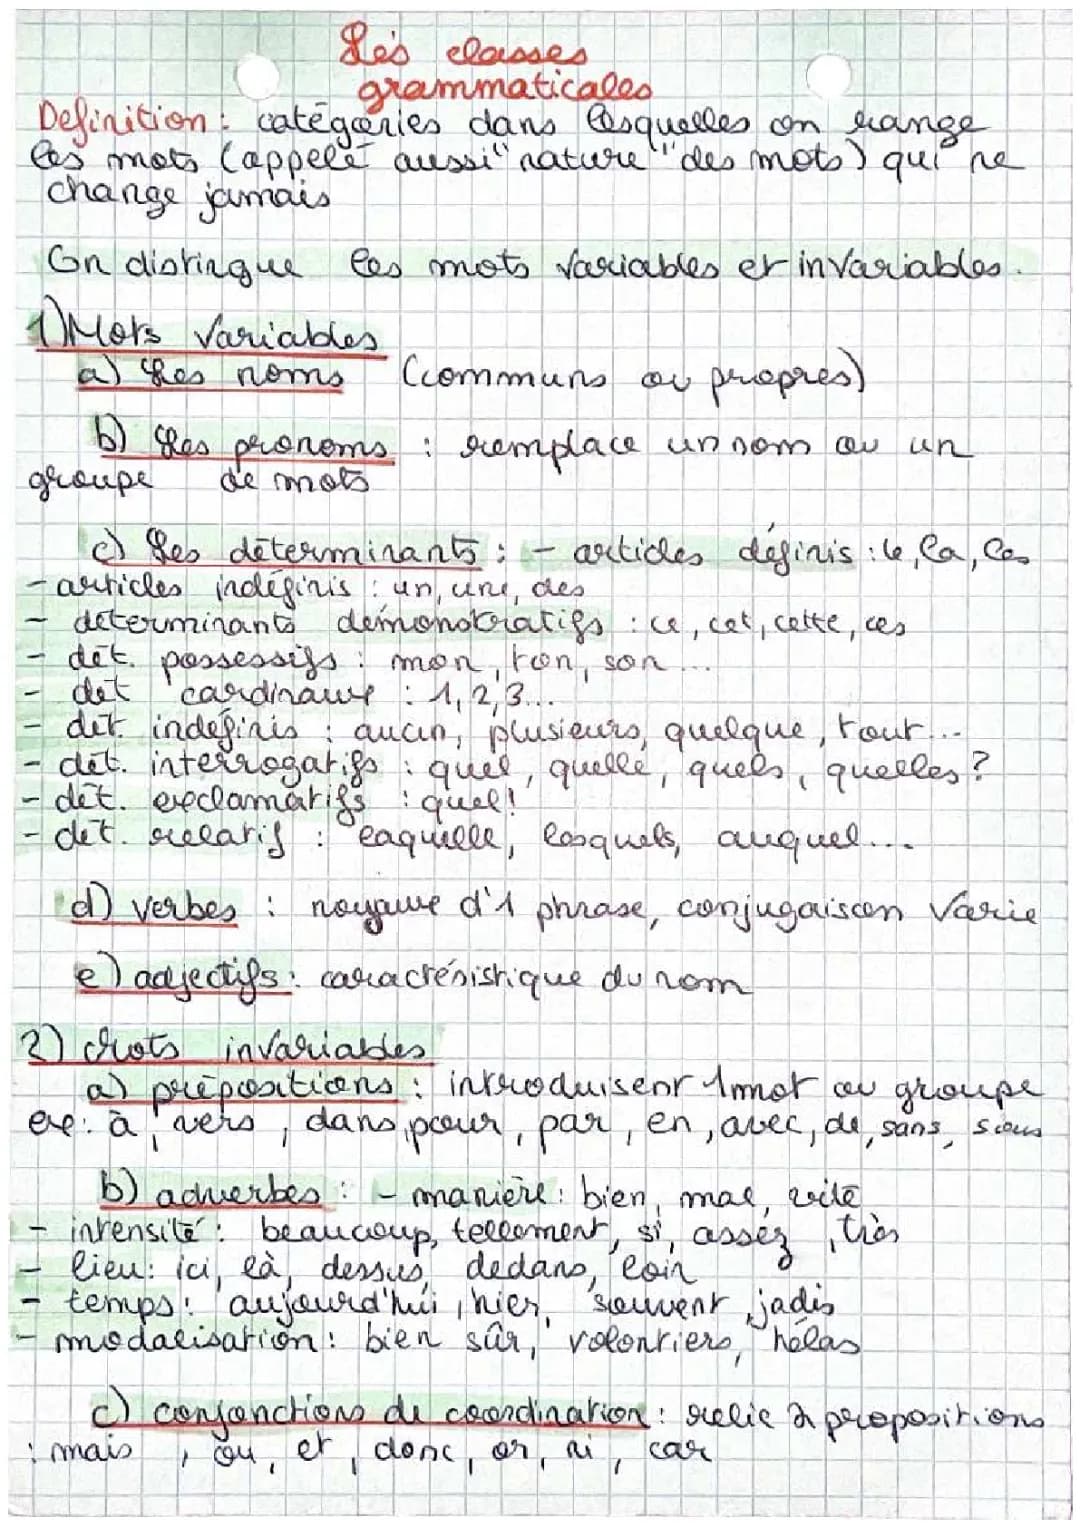 Les classes
grammaticales
Definition : catégories dans lesquelles on range
les mots (appelé aussi "nature" des mots) qui ne
change jamais
On distingue les mots variables et invariables.
1) Mots variables
a) Les noms (communs ou propres)
b) Les pronoms : remplace un nom ou un
groupe de mots
c) Les déterminants : - articles définis : le, la, les
- articles indéfinis : un, une, des
- déterminants démonstratifs : ce, cet, cette, ces
- dét. possessifs : mon, ton, son ...
- dét cardinaux : 1, 2, 3...
- dét. indéfinis : aucun, plusieurs, quelque, tout...
- dét. interrogatifs : quel, quelle, quels, quelles ?
- dét. exclamatifs : quel !
- dét. relatif : laquelle, lesquels, auquel...
d) verbes : noyaux d'1 phrase, conjugaison varie
e) adjectifs : caractéristique du nom
2) Mots invariables
a) prépositions : introduisent 1 mot ou groupe
ex : à, vers, dans, pour, par, en, avec, de, sans, sous
b) adverbes : - manière : bien, mal, vite
- intensité : beaucoup, tellement, si, assez, très
- lieu : ici, là, dessus, dedans, loin
- temps : aujourd'hui, hier, souvent, jadis
- modalisation : bien sûr, volontiers, hélas
c) conjonctions de coordination : relie 2 propositions
: mais, ou, et, donc, or, ni, car